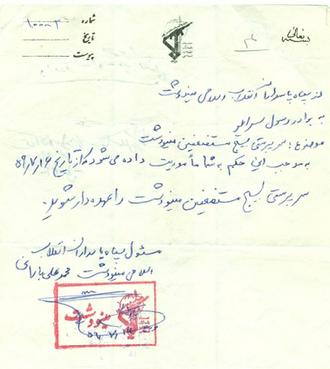 شماره ۱۰۰۸۳
تاریخ
پیوست
از سپاه پاسداران انقلاب اسلامی مینودشت
به برادر رسول
موضوع: سرپرستی بسیج مستضعفین مینودشت
به موجب این حکم به شما مأموریت داده می‌شود که از تاریخ ۵۹/۷/۱۶
سرپرستی بسیج مستضعفین مینودشت را عهده‌دار شوید.
مسئول سپاه پاسداران انقلاب
اسلامی مینودشت محمدعلی
مینودشت